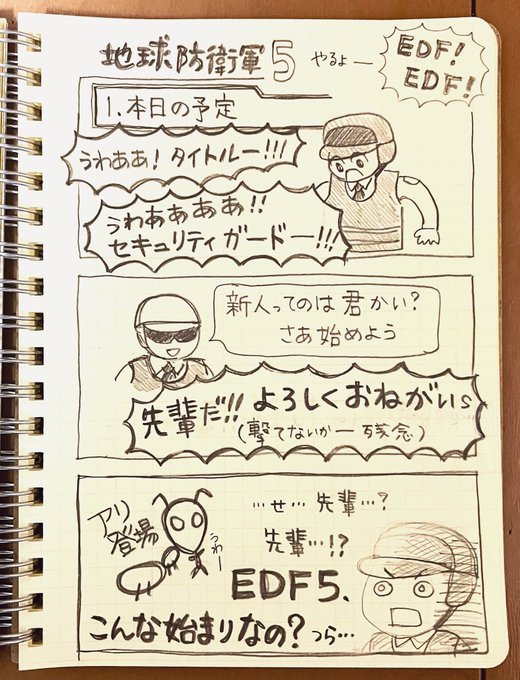 地球防衛軍5 やるよー
EDF!
EDF!
1.本日の予定
うわああ! タイトルー!!!
うわああああ!!
セキュリティガードー!!!
新人ってのは君かい?
さあ始めよう
先輩だ!! よろしくおねがいs
(撃てないかー 残念)
アリ
登場
うわー
…せ… 先輩…?
先輩…!?
EDF5、
こんな始まりなの? つら…